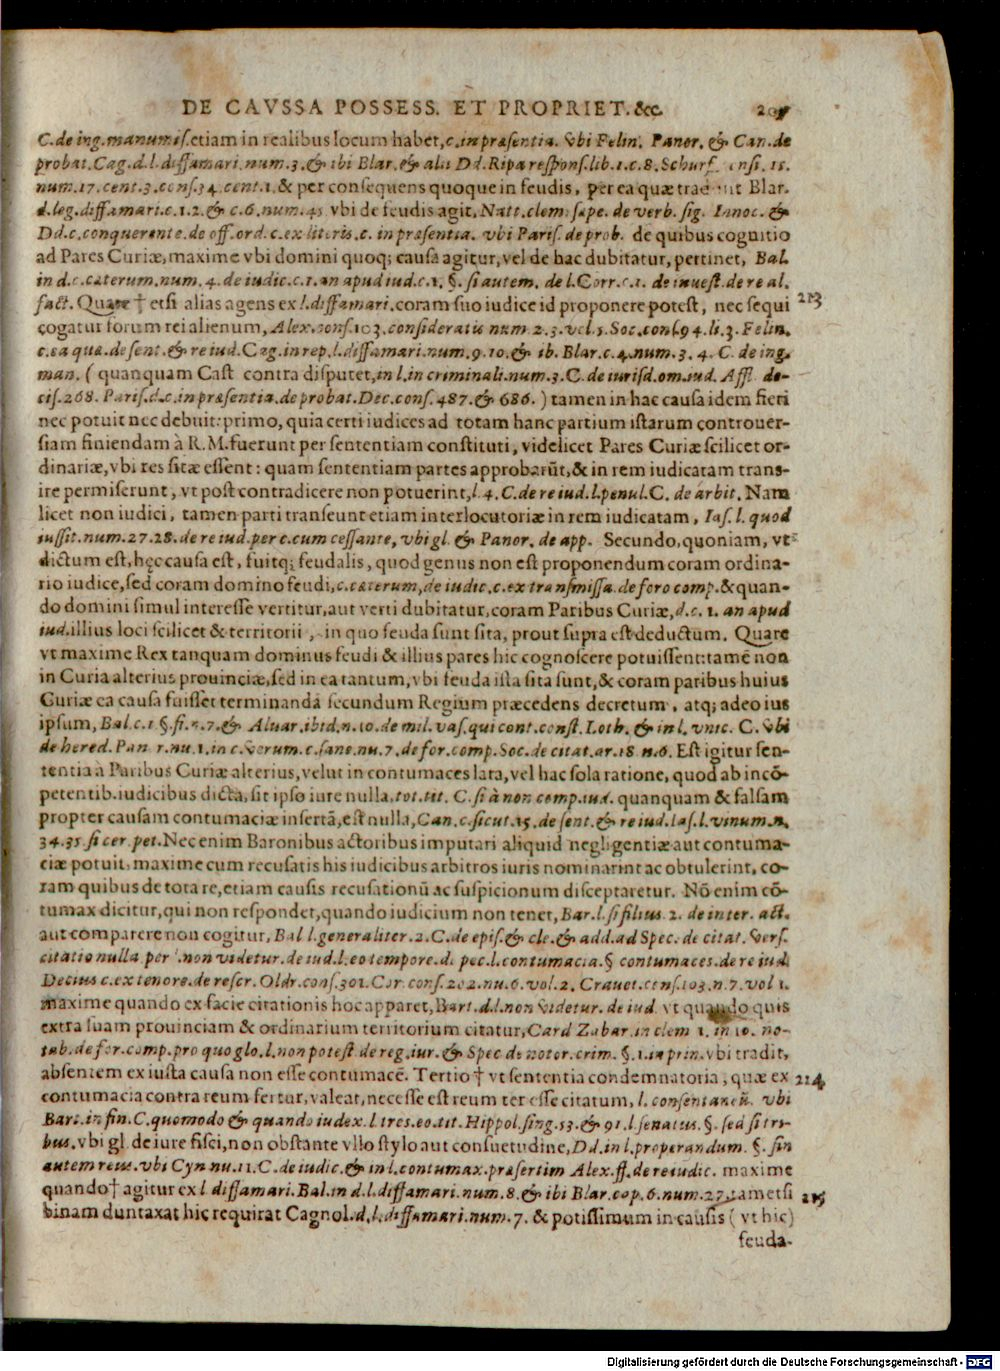 DE CAVSSA POSSESS. ET PROPRIET. &c.
C. de ing. manumis. etiam in realibus locum habet, c. in præsentia. vbi Felin. Panor. & Can. de
probat. Cag. d. l. diffamari. num. 3. & ibi Blar. & alii Dd. Ripa respons. lib. 1. c. 8. Schurf. 11.
num. 17. cent. 3. cons. 34. cent. 1. & per consequens quoque in feudis, per ea quæ Blar.
d. leg. diffamari. c. 1. 2. & c. 6. num. 45 vbi de feudis agit, Natt. clem. sæpe. de verb. sig. Innoc. &
Dd. c. conquerente. de off. ord. c. ex literis. c. in præsentia. vbi Paris. de prob. de quibus cognitio
ad Pares Curiæ, maxime vbi domini quoq; causa agitur, vel de hac dubitatur, pertinet, Bal.
in d. c. cæterum. num. 4. de iudic. c. 1. an apud iud. c. 1. §. si autem. de l. Corr. c. 1. de inuest. de re al.
fact. Quare † etsi alias agens ex l. diffamari. coram suo iudice id proponere potest, nec sequi 213
cogatur forum rei alienum, Alex. cons. 103. consideratis num. 2. 3. vol. 5. Soc. cons. 94. li. 3. Felin.
c. ea quæ. de sent. & re iud. Cag. in rep. l. diffamari. num. 9. 10. & ib. Blar. c. 4. num. 3. 4. C. de ing.
man. ( quanquam Cast contra disputet, in l. in criminali. num. 3. C. de iurisd. om. iud. Affl. de-
cis. 268. Paris. d. c. in præsentia. de probat. Dec. cons. 487. & 686. ) tamen in hac causa idem fieri
nec potuit nec debuit: primo, quia certi iudices ad totam hanc partium istarum controuer-
siam finiendam à R. M. fuerunt per sententiam constituti, videlicet Pares Curiæ scilicet or-
dinariæ, vbi res sitæ essent: quam sententiam partes approbarūt, & in rem iudicatam trans-
ire permiserunt, vt post contradicere non potuerint, l. 4. C. de re iud. l. penul. C. de arbit. Nam
licet non iudici, tamen parti transeunt etiam interlocutoriæ in rem iudicatam, Ias. l. quod
iussit. num. 27. 28. de re iud. per c. cum cessante, vbi gl. & Panor. de app. Secundo, quoniam, vt
dictum est, hęc causa est, fuitq; feudalis, quod genus non est proponendum coram ordina-
rio iudice, sed coram domino feudi, c. cæterum, de iudic. c. ex transmissa. de foro comp. & quan-
do domini simul interesse vertitur, aut verti dubitatur, coram Paribus Curiæ, d. c. 1. an apud
iud. illius loci scilicet & territorii, in quo feuda sunt sita, prout supra est deductum. Quare
vt maxime Rex tanquam dominus feudi & illius pares hic cognoscere potuissent: tamē non
in Curia alterius prouinciæ, sed in ea tantum, vbi feuda ista sita sunt, & coram paribus huius
Curiæ ea causa fuisset terminanda secundum Regium præcedens decretum, atq; adeo ius
ipsum, Bal. c. 1 §. fi. n. 7. & Aluar. ibid. n. 10. de mil. vas. qui cont. const. Loth. & in l. vnic. C. Vbi
de hered. Pan. r. nu. 1. in c. Verum. c. sane. nu. 7. de for. comp. Soc. de citat. ar. 18 n. 6. Est igitur sen-
tentia à Paribus Curiæ alterius, velut in contumaces lata, vel hac sola ratione, quod ab incō-
petentib. iudicibus dicta, sit ipso iure nulla, tot. tit. C. si à non comp. iud. quanquam & falsam
propter causam contumaciæ insertā, est nulla, Can. c. sicut. 15. de sent. & re iud. Ias. l. vinum. n.
34. 35 si cer. pet. Nec enim Baronibus actoribus imputari aliquid negligentiæ aut contuma-
ciæ potuit, maxime cum recusatis his iudicibus arbitros iuris nominarint ac obtulerint, co-
ram quibus de tota re, etiam causis recusationū ac suspicionum disceptaretur. Nō enim cō-
tumax dicitur, qui non respondet, quando iudicium non tenet, Bar. l. si filius. 2. de inter. act.
aut comparere non cogitur, Bal l. generaliter. 2. C. de epis. & cle. & add. ad Spec. de citat. vers.
citatio nulla per non videtur. de iud. l. eo tempore. de pec. l. contumacia. § contumaces. de re iud.
Decius c. ex tenore. de rescr. Oldr. cons. 301. Cor. cons. 202. nu. 6. vol. 2. Crauet. cons. 103. n. 7. vol 1.
maxime quando ex facie citationis hoc apparet, Bart. d. l. non videtur. de iud vt quando quis
extra suam prouinciam & ordinarium territorium citatur, Card Zabar. in clem 1. in 10. no-
tab. de for. comp. pro quo glo. l. non potest de reg. iur. & Spec. de notor. crim. §. 1. in prin. vbi tradit,
absentem ex iusta causa non esse contumacē. Tertio † vt sententia condemnatoria, quæ ex 214
contumacia contra reum fertur, valeat, necesse est reum ter esse citatum, l. consentaneū. vbi
Bart. in fin. C. quomodo & quando iudex. l tres. eo. tit. Hippol. sing. 53. & 91. l senatus. §. sed si tri-
bus. vbi gl. de iure fisci, non obstante vllo stylo aut consuetudine, Dd. in l. properandum. §. sin
autem reus. vbi Cyn nu. 11. C. de iudic. & in l. contumax. præsertim Alex. ff. de re iudic. maxime
quando † agitur ex l diffamari. Bal. in d. l. diffamari. num. 8. & ibi Blar. cap. 6. num. 27. tametsi 215
binam duntaxat hic requirat Cagnol. d. l. diffamari. num. 7. & potissimum in causis ( vt hic)
feuda-
Digitalisierung gefördert durch die Deutsche Forschungsgemeinschaft - DFG